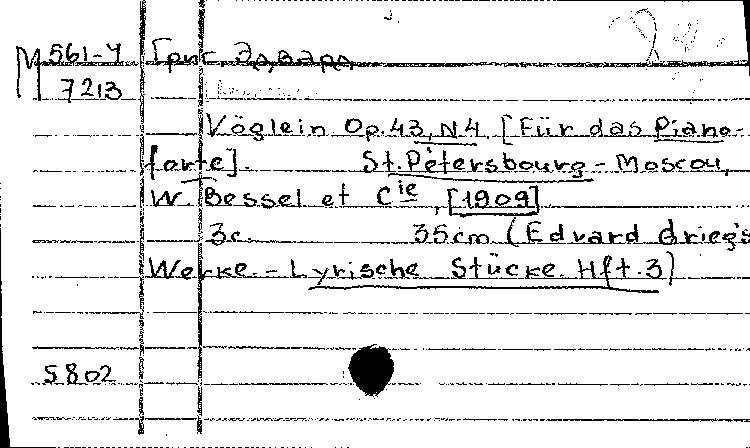 М 561-4 Григ, Эдвард
7213
Vöglein Op.43, N4 [Für das Piano-
forte]. St.Pétersbourg - Moscou,
W. Bessel et Cie, [1909]
3c. 35cm (Edvard Grieg's
Werke. - Lyrische Stücke. Hft.3)
5802